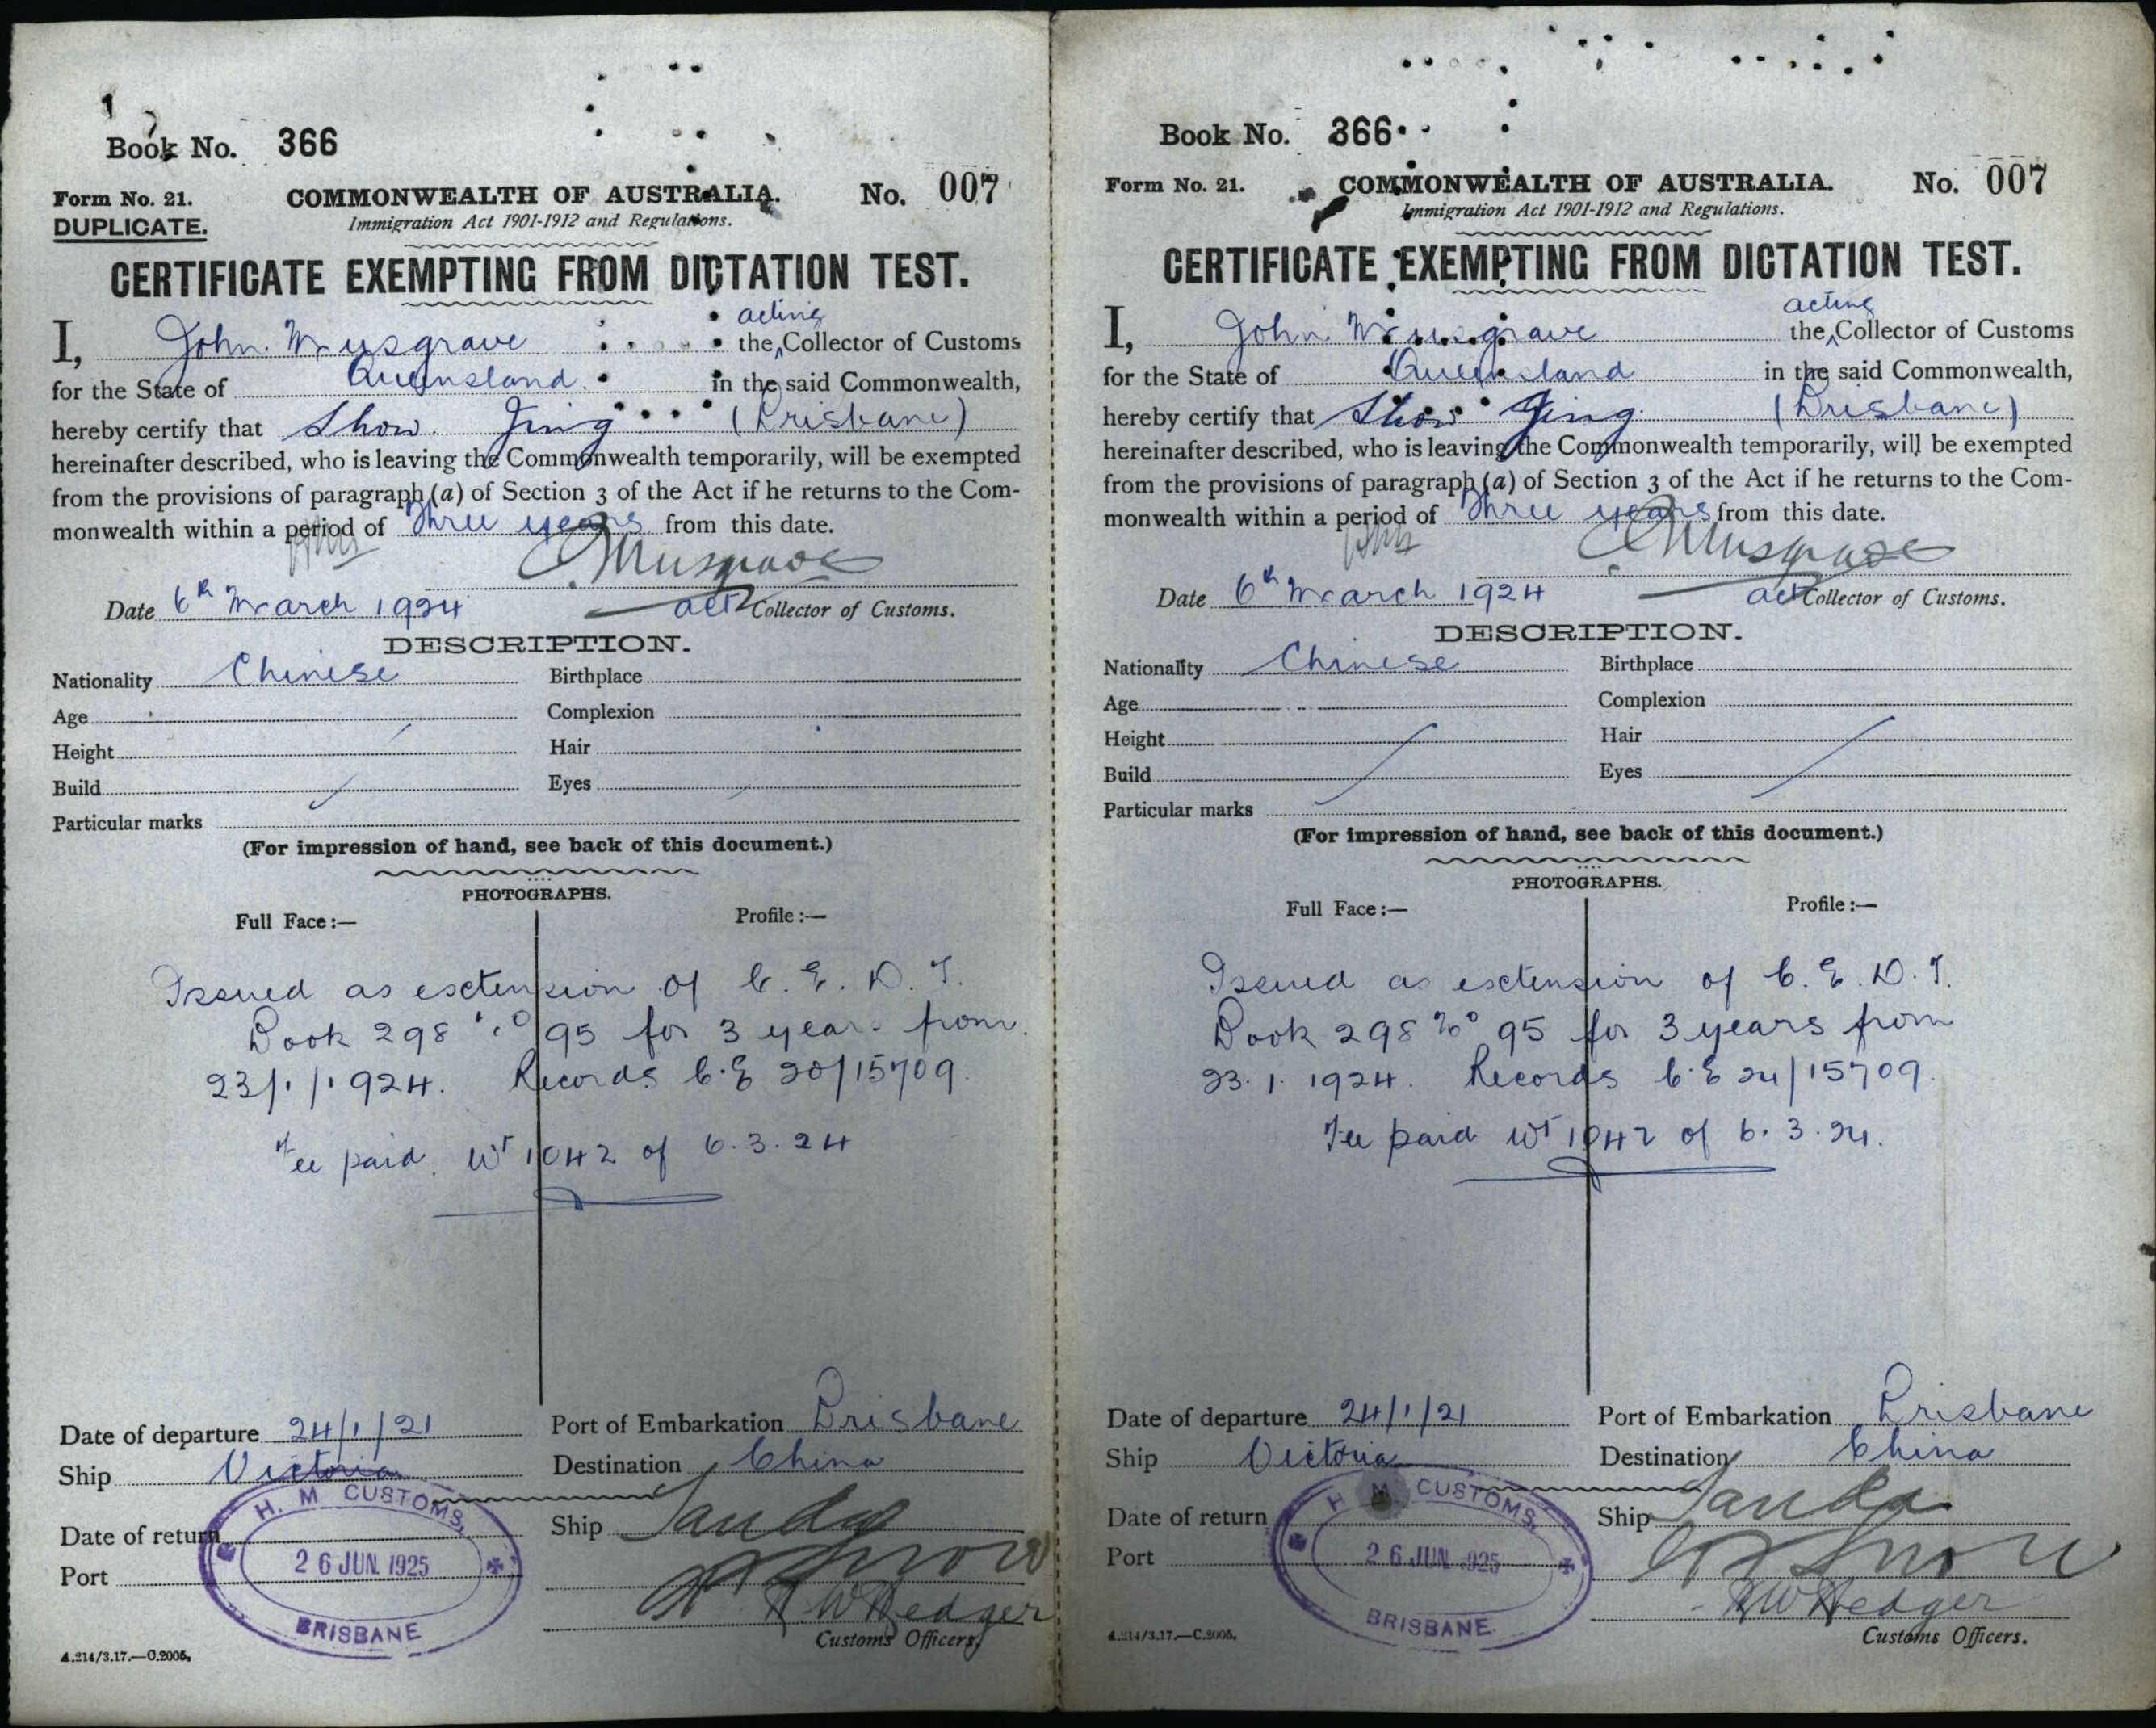 Book No. 366
Form No. 21.
COMMONWEALTH OF AUSTRALIA.
No. 007
DUPLICATE.
Immigration Act 1901-1912 and Regulations.
CERTIFICATE EXEMPTING FROM DICTATION TEST.
acting
I, John Musgrave the Collector of Customs
for the State of Queensland in the said Commonwealth,
hereby certify that Show Jing (Brisbane)
hereinafter described, who is leaving the Commonwealth temporarily, will be exempted
from the provisions of paragraph (a) of Section 3 of the Act if he returns to the Com-
monwealth within a period of three years from this date.
Musgrave
Date 6th March 1924 act Collector of Customs.
DESCRIPTION.
Nationality Chinese Birthplace
Age Complexion
Height Hair
Build Eyes
Particular marks
(For impression of hand, see back of this document.)
PHOTOGRAPHS.
Full Face:— Profile:—
Issued as esctension of C. E. D. T.
Book 298 No 95 for 3 years from
23/1/1924. Records C.E 20/15709.
Fee paid. Wt 1042 of 6.3.24
Date of departure 24/1/21 Port of Embarkation Brisbane
Ship Victoria Destination China
H. M. CUSTOMS,
Date of return Ship Tanda
26 JUN 1925
Port
BRISBANE
R W Hedger
Customs Officers.
A.214/3.17.—C.2005.
Book No. 366
Form No. 21.
COMMONWEALTH OF AUSTRALIA.
No. 007
Immigration Act 1901-1912 and Regulations.
CERTIFICATE EXEMPTING FROM DICTATION TEST.
acting
I, John Musgrave the Collector of Customs
for the State of Queensland in the said Commonwealth,
hereby certify that Show Jing (Brisbane)
hereinafter described, who is leaving the Commonwealth temporarily, will be exempted
from the provisions of paragraph (a) of Section 3 of the Act if he returns to the Com-
monwealth within a period of three years from this date.
Musgrave
Date 6th March 1924 act Collector of Customs.
DESCRIPTION.
Nationality Chinese Birthplace
Age Complexion
Height Hair
Build Eyes
Particular marks
(For impression of hand, see back of this document.)
PHOTOGRAPHS.
Full Face:— Profile:—
Issued as esctension of C. E. D. T.
Book 298 No 95 for 3 years from
23.1.1924. Records C.E 24/15709.
Fee paid Wt 1042 of 6.3.24.
Date of departure 24/1/21 Port of Embarkation Brisbane
Ship Victoria Destination China
H. M. CUSTOMS,
Date of return Ship Tanda
26 JUN 1925
Port
BRISBANE
R W Hedger
Customs Officers.
A.214/3.17.—C.2005.